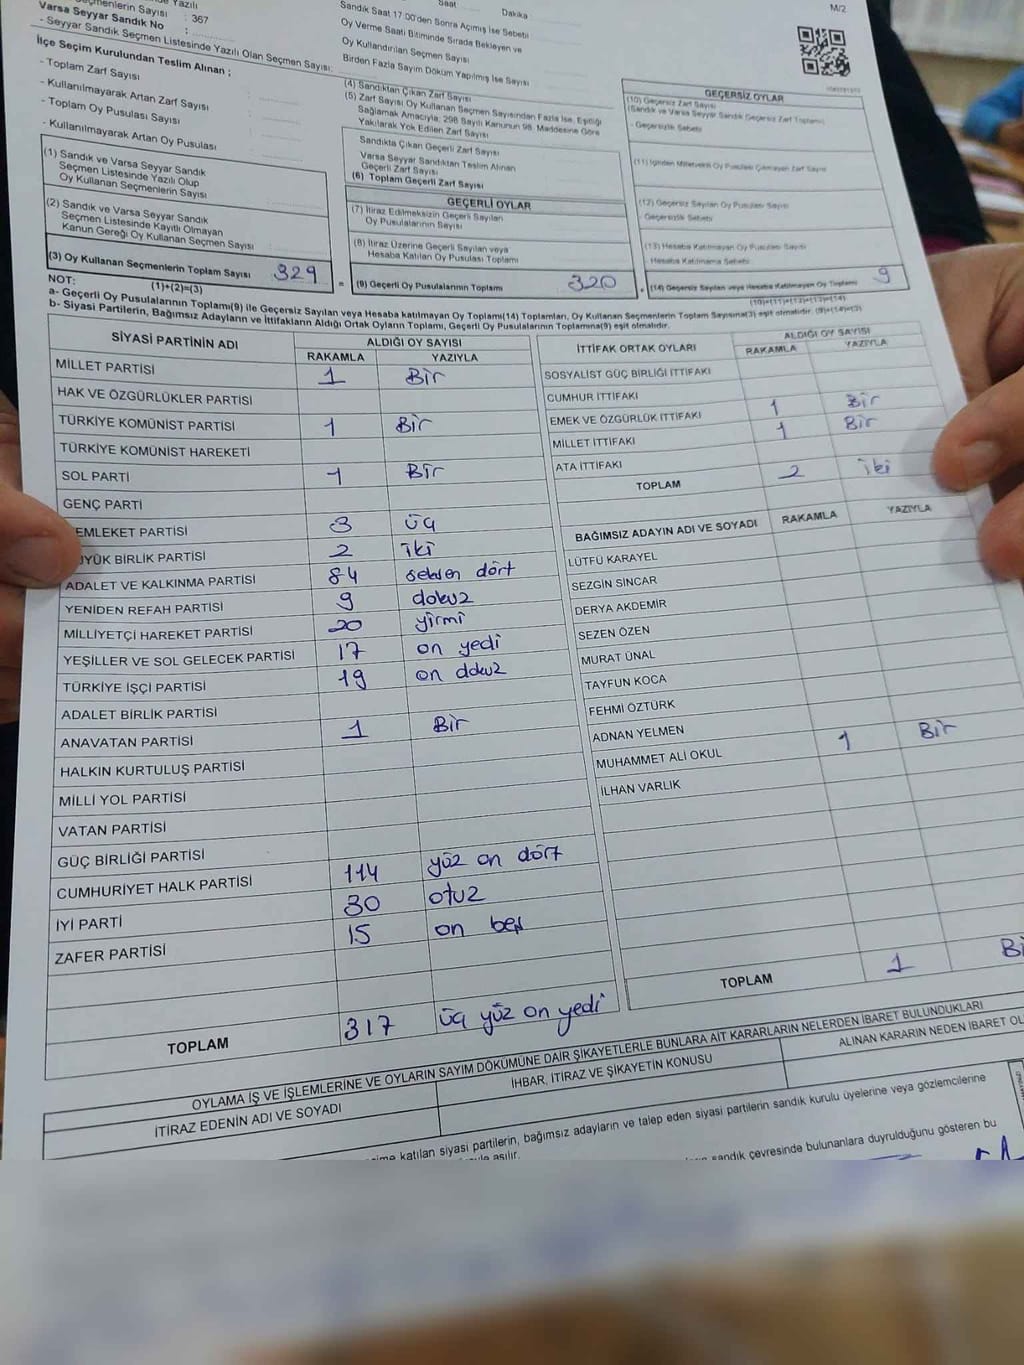 Yazılı
Seçmenlerin Sayısı : 367
Varsa Seyyar Sandık No :
- Seyyar Sandık Seçmen Listesinde Yazılı Olan Seçmen Sayısı:
İlçe Seçim Kurulundan Teslim Alınan ;
- Toplam Zarf Sayısı :
- Kullanılmayarak Artan Zarf Sayısı :
- Toplam Oy Pusulası Sayısı :
- Kullanılmayarak Artan Oy Pusulası :
(1) Sandık ve Varsa Seyyar Sandık
Seçmen Listesinde Yazılı Olup
Oy Kullanan Seçmenlerin Sayısı
(2) Sandık ve Varsa Seyyar Sandık
Seçmen Listesinde Kayıtlı Olmayan
Kanun Gereği Oy Kullanan Seçmen Sayısı
(3) Oy Kullanan Seçmenlerin Toplam Sayısı 329
(1)+(2)=(3)
Saat Dakika
Sandık Saat 17.00'den Sonra Açımış İse Sebebi
Oy Verme Saati Bitiminde Sırada Bekleyen ve
Oy Kullandırılan Seçmen Sayısı
Birden Fazla Sayım Döküm Yapılmış İse Sayısı
(4) Sandıktan Çıkan Zarf Sayısı
(5) Zarf Sayısı Oy Kullanan Seçmen Sayısından Fazla İse, Eşitliği
Sağlamak Amacıyla; 298 Sayılı Kanunun 98. Maddesine Göre
Yakılarak Yok Edilen Zarf Sayısı
Sandıkta Çıkan Geçerli Zarf Sayısı
Varsa Seyyar Sandıktan Teslim Alınan
Geçerli Zarf Sayısı
(6) Toplam Geçerli Zarf Sayısı
GEÇERLİ OYLAR
(7) İtiraz Edilmeksizin Geçerli Sayılan
Oy Pusulalarının Sayısı
(8) İtiraz Üzerine Geçerli Sayılan veya
Hesaba Katılan Oy Pusulası Toplamı
= (9) Geçerli Oy Pusulalarının Toplamı 320
M/2
GEÇERSİZ OYLAR
(10) Geçersiz Zarf Sayısı
(Sandık ve Varsa Seyyar Sandık Geçersiz Zarf Toplamı)
- Geçersizlik Sebebi
(11) İçinden Milletvekili Oy Pusulası Çıkmayan Zarf Sayısı
(12) Geçersiz Sayılan Oy Pusulası Sayısı
- Geçersizlik Sebebi
(13) Hesaba Katılmayan Oy Pusulası Sayısı
Hesaba Katılmama Sebebi
+ (14) Geçersiz Sayılan veya Hesaba Katılmayan Oy Toplamı 9
(10)+(11)+(12)+(13)=(14)
NOT:
a- Geçerli Oy Pusulalarının Toplamı(9) ile Geçersiz Sayılan veya Hesaba katılmayan Oy Toplamı(14) Toplamları, Oy Kullanan Seçmenlerin Toplam Sayısına(3) eşit olmalıdır. (9)+(14)=(3)
b- Siyasi Partilerin, Bağımsız Adayların ve İttifakların Aldığı Ortak Oyların Toplamı, Geçerli Oy Pusulalarının Toplamına(9) eşit olmalıdır.
SİYASİ PARTİNİN ADI ALDIĞI OY SAYISI
RAKAMLA YAZIYLA
MİLLET PARTİSİ 1 Bir
HAK VE ÖZGÜRLÜKLER PARTİSİ
TÜRKİYE KOMÜNİST PARTİSİ 1 Bir
TÜRKİYE KOMÜNİST HAREKETİ
SOL PARTİ 1 Bir
GENÇ PARTİ
EMLEKET PARTİSİ 3 üç
ÜYÜK BİRLİK PARTİSİ 2 iki
ADALET VE KALKINMA PARTİSİ 84 seksen dört
YENİDEN REFAH PARTİSİ 9 dokuz
MİLLİYETÇİ HAREKET PARTİSİ 20 yirmi
YEŞİLLER VE SOL GELECEK PARTİSİ 17 on yedi
TÜRKİYE İŞÇİ PARTİSİ 19 on dokuz
ADALET BİRLİK PARTİSİ
ANAVATAN PARTİSİ 1 Bir
HALKIN KURTULUŞ PARTİSİ
MİLLİ YOL PARTİSİ
VATAN PARTİSİ
GÜÇ BİRLİĞİ PARTİSİ
CUMHURİYET HALK PARTİSİ 114 yüz on dört
İYİ PARTİ 30 otuz
ZAFER PARTİSİ 15 on beş
TOPLAM 317 üç yüz on yedi
İTTİFAK ORTAK OYLARI ALDIĞI OY SAYISI
RAKAMLA YAZIYLA
SOSYALİST GÜÇ BİRLİĞİ İTTİFAKI
CUMHUR İTTİFAKI 1 Bir
EMEK VE ÖZGÜRLÜK İTTİFAKI 1 Bir
MİLLET İTTİFAKI
ATA İTTİFAKI
TOPLAM 2 iki
BAĞIMSIZ ADAYIN ADI VE SOYADI RAKAMLA YAZIYLA
LÜTFÜ KARAYEL
SEZGİN SİNCAR
DERYA AKDEMİR
SEZEN ÖZEN
MURAT ÜNAL
TAYFUN KOCA
FEHMİ ÖZTÜRK
ADNAN YELMEN
MUHAMMET ALİ OKUL 1 Bir
İLHAN VARLIK
TOPLAM 1 Bi
OYLAMA İŞ VE İŞLEMLERİNE VE OYLARIN SAYIM DÖKÜMÜNE DAİR ŞİKAYETLERLE BUNLARA AİT KARARLARIN NELERDEN İBARET BULUNDUKLARI
İTİRAZ EDENİN ADI VE SOYADI İHBAR, İTİRAZ VE ŞİKAYETİN KONUSU ALINAN KARARIN NEDEN İBARET OL
katılan siyasi partilerin, bağımsız adayların ve talep eden siyasi partilerin sandık kurulu üyelerine veya gözlemcilerine
asılır. sandık çevresinde bulunanlara duyrulduğunu gösteren bu